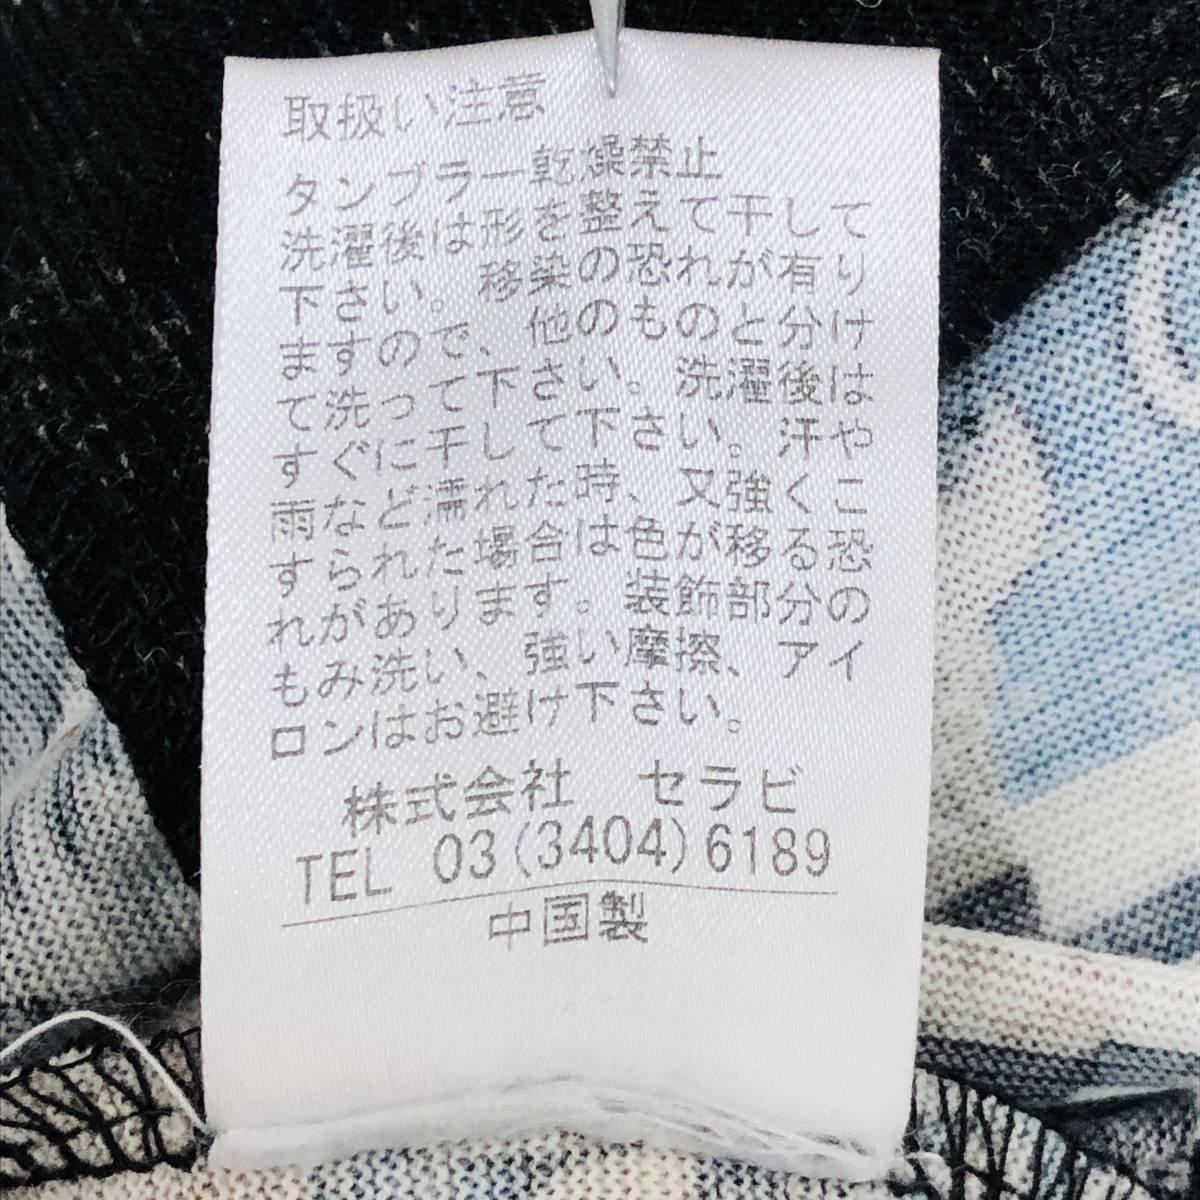 取扱い注意
タンブラー乾燥禁止
洗濯後は形を整えて干して
下さい。移染の恐れが有り
ますので、他のものと分け
て洗って下さい。洗濯後は
すぐに干して下さい。汗や
雨などで濡れた時、又強くこ
すられた場合は色が移る恐
れがあります。装飾部分の
もみ洗い、強い摩擦、アイ
ロンはお避け下さい。
株式会社 セラビ
TEL 03(3404)6189
中国製